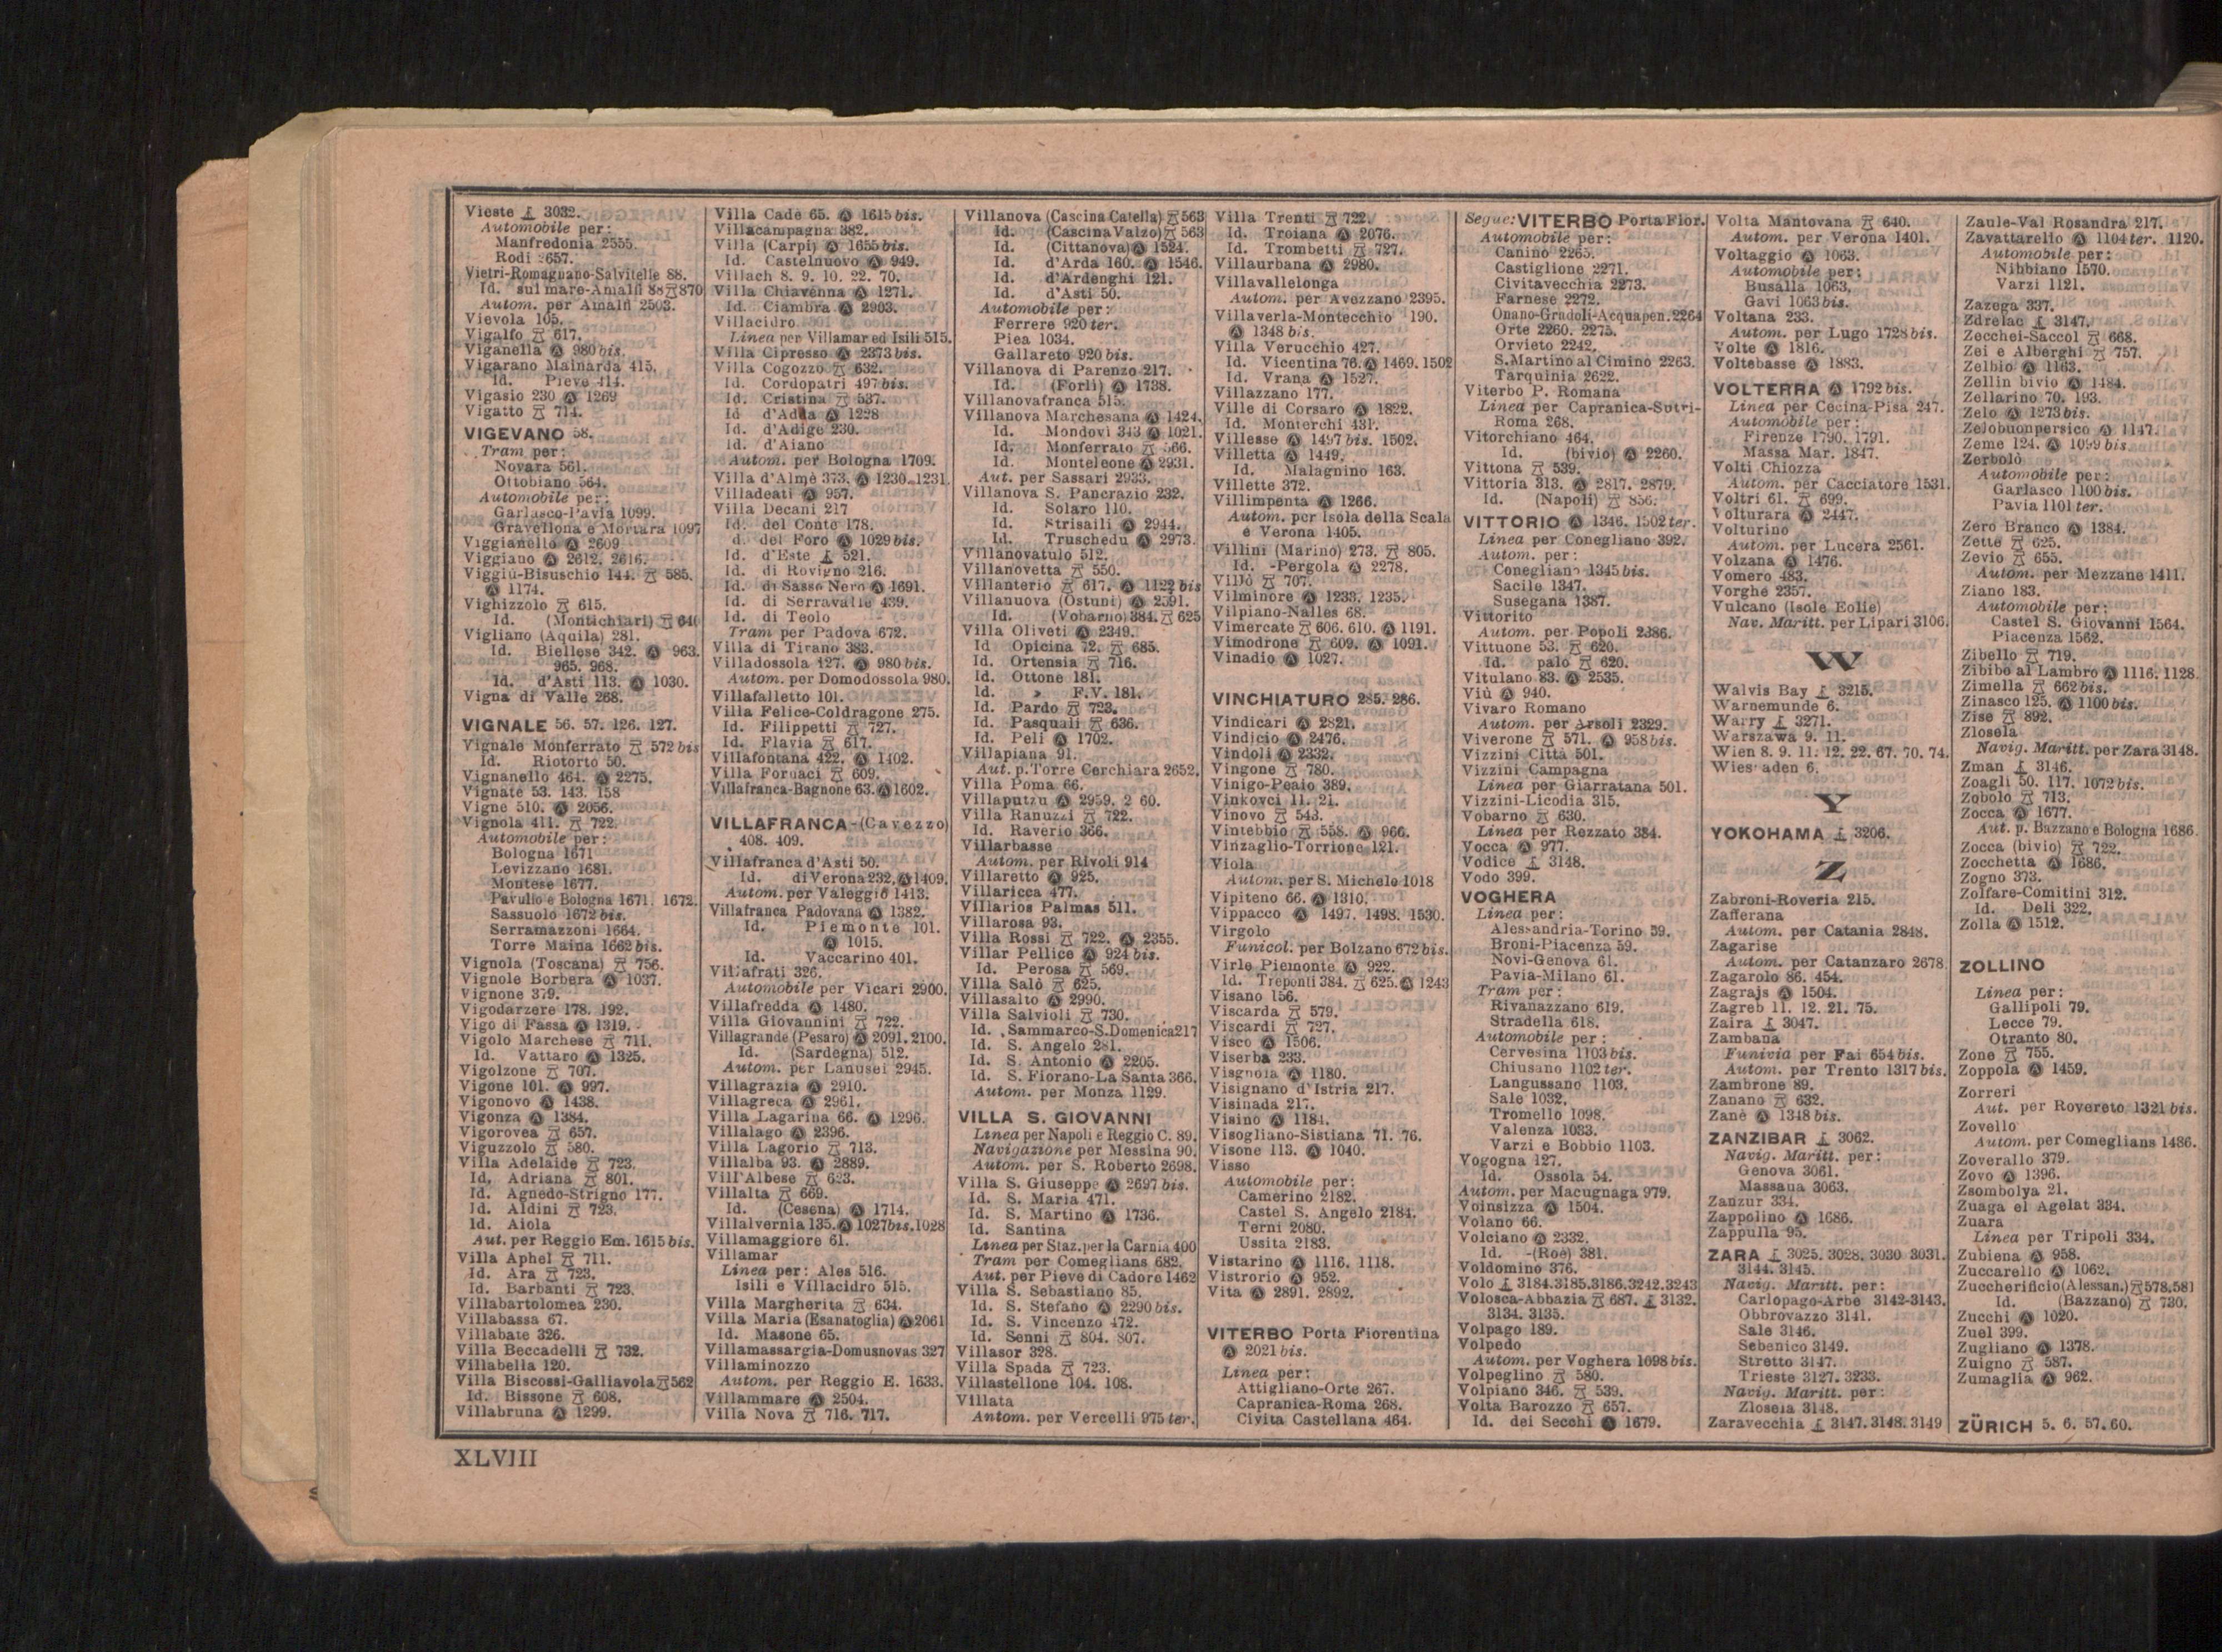 Vieste 3032.
Automobile per:
Manfredonia 2555.
Rodi 2657.
Vietri-Romagnano-Salvitelle 88.
Id. sul mare-Amalfi 88 870
Autom. per Amalfi 2503.
Vievola 105.
Vigalfo 617.
Viganella Ⓐ 980 bis.
Vigarano Mainarda 415.
Id. Pieve 414.
Vigasio 230 Ⓐ 1269
Vigatto 714.
VIGEVANO 58.
Tram per:
Novara 561.
Ottobiano 564.
Automobile per:
Garlasco-Pavia 1099.
Gravellona e Mortara 1097
Viggianello Ⓐ 2609
Viggiano Ⓐ 2612. 2616.
Viggiù-Bisuschio 144. 585.
Ⓐ 1174.
Vighizzolo 615.
Id. (Montichiari) 640
Vigliano (Aquila) 281.
Id. Biellese 342. Ⓐ 963.
965. 968.
Id. d'Asti 113. Ⓐ 1030.
Vigna di Valle 268.
VIGNALE 56. 57. 126. 127.
Vignale Monferrato 572 bis
Id. Riotorto 50.
Vignanello 464. Ⓐ 2275.
Vignate 53. 143. 158
Vigne 510. Ⓐ 2056.
Vignola 411. 722.
Automobile per:
Bologna 1671
Levizzano 1681.
Montese 1677.
Pavullo e Bologna 1671. 1672.
Sassuolo 1672 bis.
Serramazzoni 1664.
Torre Maina 1662 bis.
Vignola (Toscana) 756.
Vignole Borbera Ⓐ 1037.
Vignone 379.
Vigodarzere 178. 192.
Vigo di Fassa Ⓐ 1319.
Vigolo Marchese 711.
Id. Vattaro Ⓐ 1325.
Vigolzone 707.
Vigone 101. Ⓐ 997.
Vigonovo Ⓐ 1438.
Vigonza Ⓐ 1384.
Vigorovea 657.
Viguzzolo 580.
Villa Adelaide 723.
Id. Adriana 801.
Id. Agnedo-Strigno 177.
Id. Aldini 723.
Id. Aiola
Aut. per Reggio Em. 1615 bis.
Villa Aphel 711.
Id. Ara 723.
Id. Barbanti 723.
Villabartolomea 230.
Villabassa 67.
Villabate 326.
Villa Beccadelli 732.
Villabella 120.
Villa Biscossi-Galliavola 562
Id. Bissone 608.
Villabruna Ⓐ 1299.
Villa Cadè 65. Ⓐ 1615 bis.
Villacampagna 382.
Villa (Carpi) Ⓐ 1655 bis.
Id. Castelnuovo Ⓐ 949.
Villach 8. 9. 10. 22. 70.
Villa Chiavenna Ⓐ 1271.
Id. Ciambra Ⓐ 2903.
Villacidro
Linea per Villamar ed Isili 515.
Villa Cipresso Ⓐ 2373 bis.
Villa Cogozzo 632.
Id. Cordopatri 497 bis.
Id. Cristina 537.
Id d'Adda Ⓐ 1228
Id. d'Adige 230.
Id. d'Aiano
Autom. per Bologna 1709.
Villa d'Almè 373. Ⓐ 1230. 1231.
Villadeati Ⓐ 957.
Villa Decani 217
Id. del Conte 178.
d. del Foro Ⓐ 1029 bis.
Id. d'Este 521.
Id. di Rovigno 216.
Id. di Sasso Nero Ⓐ 1691.
Id. di Serravalle 439.
Id. di Teolo
Tram per Padova 672.
Villa di Tirano 383.
Villadossola 127. Ⓐ 980 bis.
Autom. per Domodossola 980.
Villafalletto 101.
Villa Felice-Coldragone 275.
Id. Filippetti 727.
Id. Flavia 617.
Villafontana 422. Ⓐ 1402.
Villa Fornaci 609.
Villafranca-Bagnone 63. Ⓐ 1602.
VILLAFRANCA-(Cavezzo)
408. 409.
Villafranca d'Asti 50.
Id. di Verona 232. Ⓐ 1409.
Autom. per Valeggio 1413.
Villafranca Padovana Ⓐ 1382.
Id. Piemonte 101.
Ⓐ 1015.
Id. Vaccarino 401.
Villafrati 326.
Automobile per Vicari 2900.
Villafredda Ⓐ 1480.
Villa Giovannini 722.
Villagrande (Pesaro) Ⓐ 2091. 2100.
Id. (Sardegna) 512.
Autom. per Lanusei 2945.
Villagrazia Ⓐ 2910.
Villagreca Ⓐ 2961.
Villa Lagarina 66. Ⓐ 1296.
Villalago Ⓐ 2396.
Villa Lagorio 713.
Villalba 93. Ⓐ 2889.
Vill'Albese 623.
Villalta 669.
Id. (Cesena) Ⓐ 1714.
Villalvernia 135. Ⓐ 1027 bis. 1028
Villamaggiore 61.
Villamar
Linea per: Ales 516.
Isili e Villacidro 515.
Villa Margherita 634.
Villa Maria (Esanatoglia) Ⓐ 2061
Id. Masone 65.
Villamassargia-Domusnovas 327
Villaminozzo
Autom. per Reggio E. 1633.
Villammare Ⓐ 2504.
Villa Nova 716. 717.
Villanova (Cascina Catella) 563
Id. (Cascina Valzo) 563
Id. (Cittanova) Ⓐ 1524.
Id. d'Arda 160. Ⓐ 1546.
Id. d'Ardenghi 121.
Id. d'Asti 50.
Automobile per:
Ferrere 920 ter.
Piea 1034.
Gallareto 920 bis.
Villanova di Parenzo 217.
Id. (Forlì) Ⓐ 1738.
Villanovafranca 515.
Villanova Marchesana Ⓐ 1424.
Id. Mondovì 343 Ⓐ 1021.
Id. Monferrato 566.
Id. Monteleone Ⓐ 2931.
Aut. per Sassari 2933.
Villanova S. Pancrazio 232.
Id. Solaro 110.
Id. Strisaili Ⓐ 2944.
Id. Truschedu Ⓐ 2973.
Villanovatulo 512.
Villanovetta 550.
Villanterio 617. Ⓐ 1122 bis
Villanuova (Ostuni) Ⓐ 2591.
Id. (Vobarno) 384. 625
Villa Oliveti Ⓐ 2349.
Id Opicina 72. 685.
Id. Ortensia 716.
Id. Ottone 181.
Id. » F.V. 181.
Id. Pardo 723.
Id. Pasquali 636.
Id. Peli Ⓐ 1702.
Villapiana 91.
Aut. p. Torre Cerchiara 2652.
Villa Poma 66.
Villaputzu Ⓐ 2959. 2 60.
Villa Ranuzzi 722.
Id. Raverio 366.
Villarbasse
Autom. per Rivoli 914
Villaretto Ⓐ 925.
Villaricca 477.
Villarios Palmas 511.
Villarosa 93.
Villa Rossi 722. Ⓐ 2355.
Villar Pellice Ⓐ 924 bis.
Id. Perosa 569.
Villa Salò 625.
Villasalto Ⓐ 2990.
Villa Salvioli 730.
Id. Sammarco-S. Domenica 217
Id. S. Angelo 281.
Id. S. Antonio Ⓐ 2205.
Id. S. Fiorano-La Santa 366.
Autom. per Monza 1129.
VILLA S. GIOVANNI
Linea per Napoli e Reggio C. 89.
Navigazione per Messina 90.
Autom. per S. Roberto 2698.
Villa S. Giuseppe Ⓐ 2697 bis.
Id. S. Maria 471.
Id. S. Martino Ⓐ 1736.
Id. Santina
Linea per Staz. per la Carnia 400
Tram per Comeglians 682.
Aut. per Pieve di Cadore 1462
Villa S. Sebastiano 85.
Id. S. Stefano Ⓐ 2290 bis.
Id. S. Vincenzo 472.
Id. Senni 804. 807.
Villasor 328.
Villa Spada 723.
Villastellone 104. 108.
Villata
Antom. per Vercelli 975 ter.
Villa Trenti 722.
Id. Troiana Ⓐ 2076.
Id. Trombetti 727.
Villaurbana Ⓐ 2980.
Villavallelonga
Autom. per Avezzano 2395.
Villaverla-Montecchio 190.
Ⓐ 1348 bis.
Villa Verucchio 427.
Id. Vicentina 76. Ⓐ 1469. 1502
Id. Vrana Ⓐ 1527.
Villazzano 177.
Ville di Corsaro Ⓐ 1822.
Id. Monterchi 431.
Villesse Ⓐ 1497 bis. 1502.
Villetta Ⓐ 1449.
Id. Malagnino 163.
Villette 372.
Villimpenta Ⓐ 1266.
Autom. per Isola della Scala
e Verona 1405.
Villini (Marino) 273. 805.
Id. -Pergola Ⓐ 2278.
Villò 707.
Vilminore Ⓐ 1233. 1235.
Vilpiano-Nalles 68.
Vimercate 606. 610. Ⓐ 1191.
Vimodrone 609. Ⓐ 1091.
Vinadio Ⓐ 1027.
VINCHIATURO 285. 286.
Vindicari Ⓐ 2821.
Vindicio Ⓐ 2476.
Vindoli Ⓐ 2332.
Vingone 780.
Vinigo-Peaio 389.
Vinkovci 11. 21.
Vinovo 543.
Vintebbio 558. Ⓐ 966.
Vinzaglio-Torrione 121.
Viola
Autom. per S. Michele 1018
Vipiteno 66. Ⓐ 1310.
Vippacco Ⓐ 1497. 1498. 1530.
Virgolo
Funicol. per Bolzano 672 bis.
Virle Piemonte Ⓐ 922.
Id. Treponti 384. 625. Ⓐ 1243
Visano 156.
Viscarda 579.
Viscardi 727.
Visco Ⓐ 1506.
Viserba 233.
Visgnola Ⓐ 1180.
Visignano d'Istria 217.
Visinada 217.
Visino Ⓐ 1184.
Visogliano-Sistiana 71. 76.
Visone 113. Ⓐ 1040.
Visso
Automobile per:
Camerino 2182.
Castel S. Angelo 2184.
Terni 2080.
Ussita 2183.
Vistarino Ⓐ 1116. 1118.
Vistrorio Ⓐ 952.
Vita Ⓐ 2891. 2892.
VITERBO Porta Fiorentina
Ⓐ 2021 bis.
Linea per:
Attigliano-Orte 267.
Capranica-Roma 268.
Civita Castellana 464.
Segue: VITERBO Porta Fior.
Automobile per:
Canino 2265.
Castiglione 2271.
Civitavecchia 2273.
Farnese 2272.
Onano-Gradoli-Acquapen. 2264
Orte 2260. 2275.
Orvieto 2242.
S. Martino al Cimino 2263.
Tarquinia 2622.
Viterbo P. Romana
Linea per Capranica-Sutri-
Roma 268.
Vitorchiano 464.
Id. (bivio) Ⓐ 2260.
Vittona 539.
Vittoria 313. Ⓐ 2817. 2879.
Id. (Napoli) 856.
VITTORIO Ⓐ 1346. 1502 ter.
Linea per Conegliano 392.
Autom. per:
Conegliano 1345 bis.
Sacile 1347.
Susegana 1387.
Vittorito
Autom. per Popoli 2386.
Vittuone 53. 620.
Id. palo 620.
Vitulano 83. Ⓐ 2535.
Viù Ⓐ 940.
Vivaro Romano
Autom. per Arsoli 2329.
Viverone 571. Ⓐ 958 bis.
Vizzini Città 501.
Vizzini Campagna
Linea per Giarratana 501.
Vizzini-Licodia 315.
Vobarno 630.
Linea per Rezzato 384.
Vocca Ⓐ 977.
Vodice 3148.
Vodo 399.
VOGHERA
Linea per:
Alessandria-Torino 59.
Broni-Piacenza 59.
Novi-Genova 61.
Pavia-Milano 61.
Tram per:
Rivanazzano 619.
Stradella 618.
Automobile per:
Cervesina 1103 bis.
Chiusano 1102 ter.
Langussano 1103.
Sale 1032.
Tromello 1098.
Valenza 1033.
Varzi e Bobbio 1103.
Vogogna 127.
Id. Ossola 54.
Autom. per Macugnaga 979.
Voinsizza Ⓐ 1504.
Volano 66.
Volciano Ⓐ 2332.
Id. -(Roè) 381.
Voldomino 376.
Volo 3184. 3185. 3186. 3242. 3243
Volosca-Abbazia 687. 3132.
3134. 3135.
Volpago 189.
Volpedo
Autom. per Voghera 1098 bis.
Volpeglino 580.
Volpiano 346. 539.
Volta Barozzo 657.
Id. dei Secchi Ⓐ 1679.
Volta Mantovana 640.
Autom. per Verona 1401.
Voltaggio Ⓐ 1063.
Automobile per:
Busalla 1063.
Gavi 1063 bis.
Voltana 233.
Autom. per Lugo 1728 bis.
Volte Ⓐ 1816.
Voltebasse Ⓐ 1883.
VOLTERRA Ⓐ 1792 bis.
Linea per Cecina-Pisa 247.
Automobile per:
Firenze 1790. 1791.
Massa Mar. 1847.
Volti Chiozza
Autom. per Cacciatore 1531.
Voltri 61. 699.
Volturara Ⓐ 2447.
Volturino
Autom. per Lucera 2561.
Volzana Ⓐ 1476.
Vomero 483.
Vorghe 2357.
Vulcano (Isole Eolie)
Nav. Maritt. per Lipari 3106.
W
Walvis Bay 3215.
Warnemunde 6.
Warry 3271.
Warszawa 9. 11.
Wien 8. 9. 11. 12. 22. 67. 70. 74.
Wies aden 6.
Y
YOKOHAMA 3206.
Z
Zabroni-Roveria 215.
Zafferana
Autom. per Catania 2848.
Zagarise
Autom. per Catanzaro 2678
Zagarolo 86. 454.
Zagrajs Ⓐ 1504.
Zagreb 11. 12. 21. 75.
Zaira 3047.
Zambana
Funivia per Fai 654 bis.
Autom. per Trento 1317 bis.
Zambrone 89.
Zanano 632.
Zanè Ⓐ 1348 bis.
ZANZIBAR 3062.
Navig. Maritt. per:
Genova 3061.
Massaua 3063.
Zanzur 334.
Zappolino Ⓐ 1686.
Zappulla 95.
ZARA 3025. 3028. 3030 3031.
3144. 3145.
Navig. Maritt. per:
Carlopago-Arbe 3142-3143.
Obbrovazzo 3141.
Sale 3146.
Sebenico 3149.
Stretto 3147.
Trieste 3127. 3233.
Navig. Maritt. per:
Zlosela 3148.
Zaravecchia 3147. 3148. 3149
Zaule-Val Rosandra 217.
Zavattarello Ⓐ 1104 ter. 1120.
Automobile per:
Nibbiano 1570.
Varzi 1121.
Zazega 337.
Zdrelac 3147.
Zecchei-Saccol 668.
Zei e Alberghi 757.
Zelbio Ⓐ 1163.
Zellin bivio Ⓐ 1484.
Zellarino 70. 193.
Zelo Ⓐ 1273 bis.
Zelobuonpersico Ⓐ 1147.
Zeme 124. Ⓐ 1099 bis.
Zerbolò
Automobile per:
Garlasco 1100 bis.
Pavia 1101 ter.
Zero Branco Ⓐ 1384.
Zette 625.
Zevio 655.
Autom. per Mezzane 1411.
Ziano 183.
Automobile per:
Castel S. Giovanni 1564.
Piacenza 1562.
Zibello 719.
Zibibo al Lambro Ⓐ 1116. 1128
Zimella 662 bis.
Zinasco 125. Ⓐ 1100 bis.
Zise 892.
Zlosela
Navig. Maritt. per Zara 3148.
Zman 3146.
Zoagli 50. 117. 1072 bis.
Zobolo 713.
Zocca Ⓐ 1677.
Aut. p. Bazzano e Bologna 1686.
Zocca (bivio) 722.
Zocchetta Ⓐ 1686.
Zogno 373.
Zolfare-Comitini 312.
Id. Deli 322.
Zolla Ⓐ 1512.
ZOLLINO
Linea per:
Gallipoli 79.
Lecce 79.
Otranto 80.
Zone 755.
Zoppola Ⓐ 1459.
Zorreri
Aut. per Rovereto 1321 bis.
Zovello
Autom. per Comeglians 1486.
Zoverallo 379.
Zovo Ⓐ 1396.
Zsombolya 21.
Zuaga el Agelat 334.
Zuara
Linea per Tripoli 334.
Zubiena Ⓐ 958.
Zuccarello Ⓐ 1062.
Zuccherificio (Alessan.) 578. 581
Id. (Bazzano) 730.
Zucchi Ⓐ 1020.
Zuel 399.
Zugliano Ⓐ 1378.
Zuigno 587.
Zumaglia Ⓐ 962.
ZÜRICH 5. 6. 57. 60.
XLVIII